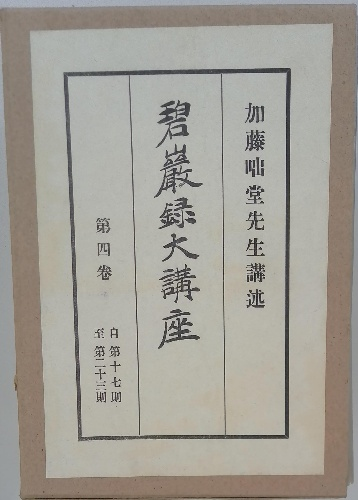 加藤咄堂先生講述
碧巖録大講座
第四卷
自第十七則
至第二十三則